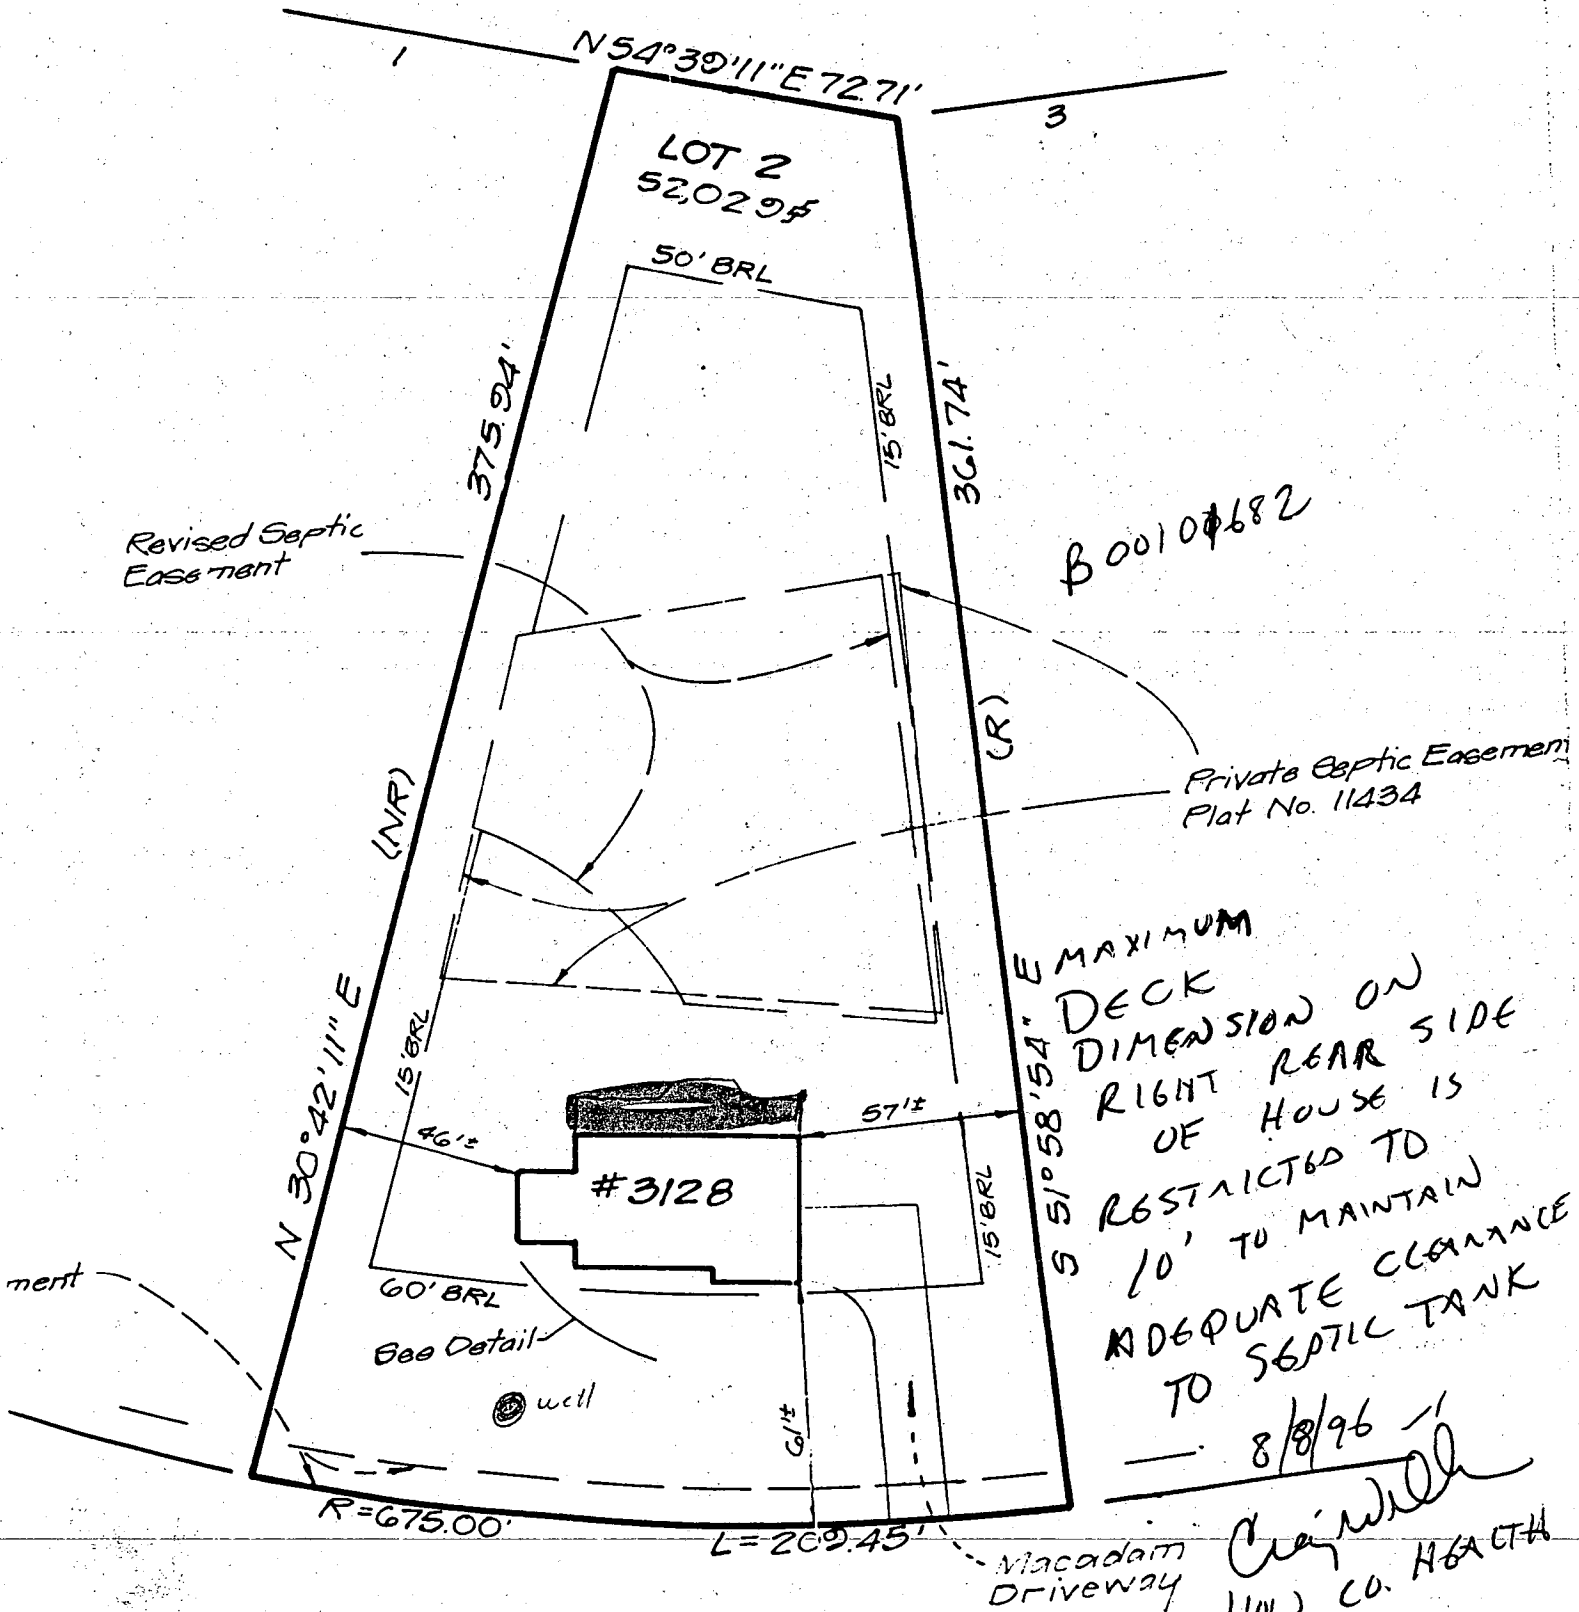 1
N 54°39'11" E 72.71'
3
LOT 2
52,029
50' BRL
375.94'
15' BRL
361.74'
Revised Septic
Easement
(NR)
(R)
Private Septic Easement
Plat No. 11434
N 30°42'11" E
15' BRL
S 51°58'54" E
MAXIMUM
DECK
DIMENSION ON
RIGHT REAR SIDE
OF HOUSE IS
RESTRICTED TO
10' TO MAINTAIN
ADEQUATE CLEARANCE
TO SEPTIC TANK
46'±
57'±
#3128
15' BRL
ment
60' BRL
See Detail
well
61'±
8/8/96
R=675.00'
L=209.45'
Macadam
Driveway
CO. HEALTH